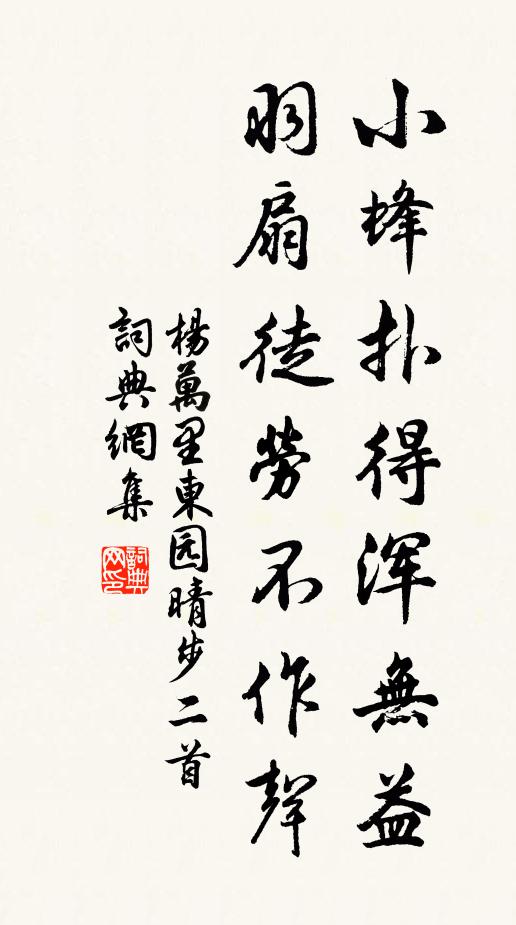 小蜂扑得浑無益
羽扇徒勞不作聲
楊萬里東园晴步二首
詞典網集
詞典网印